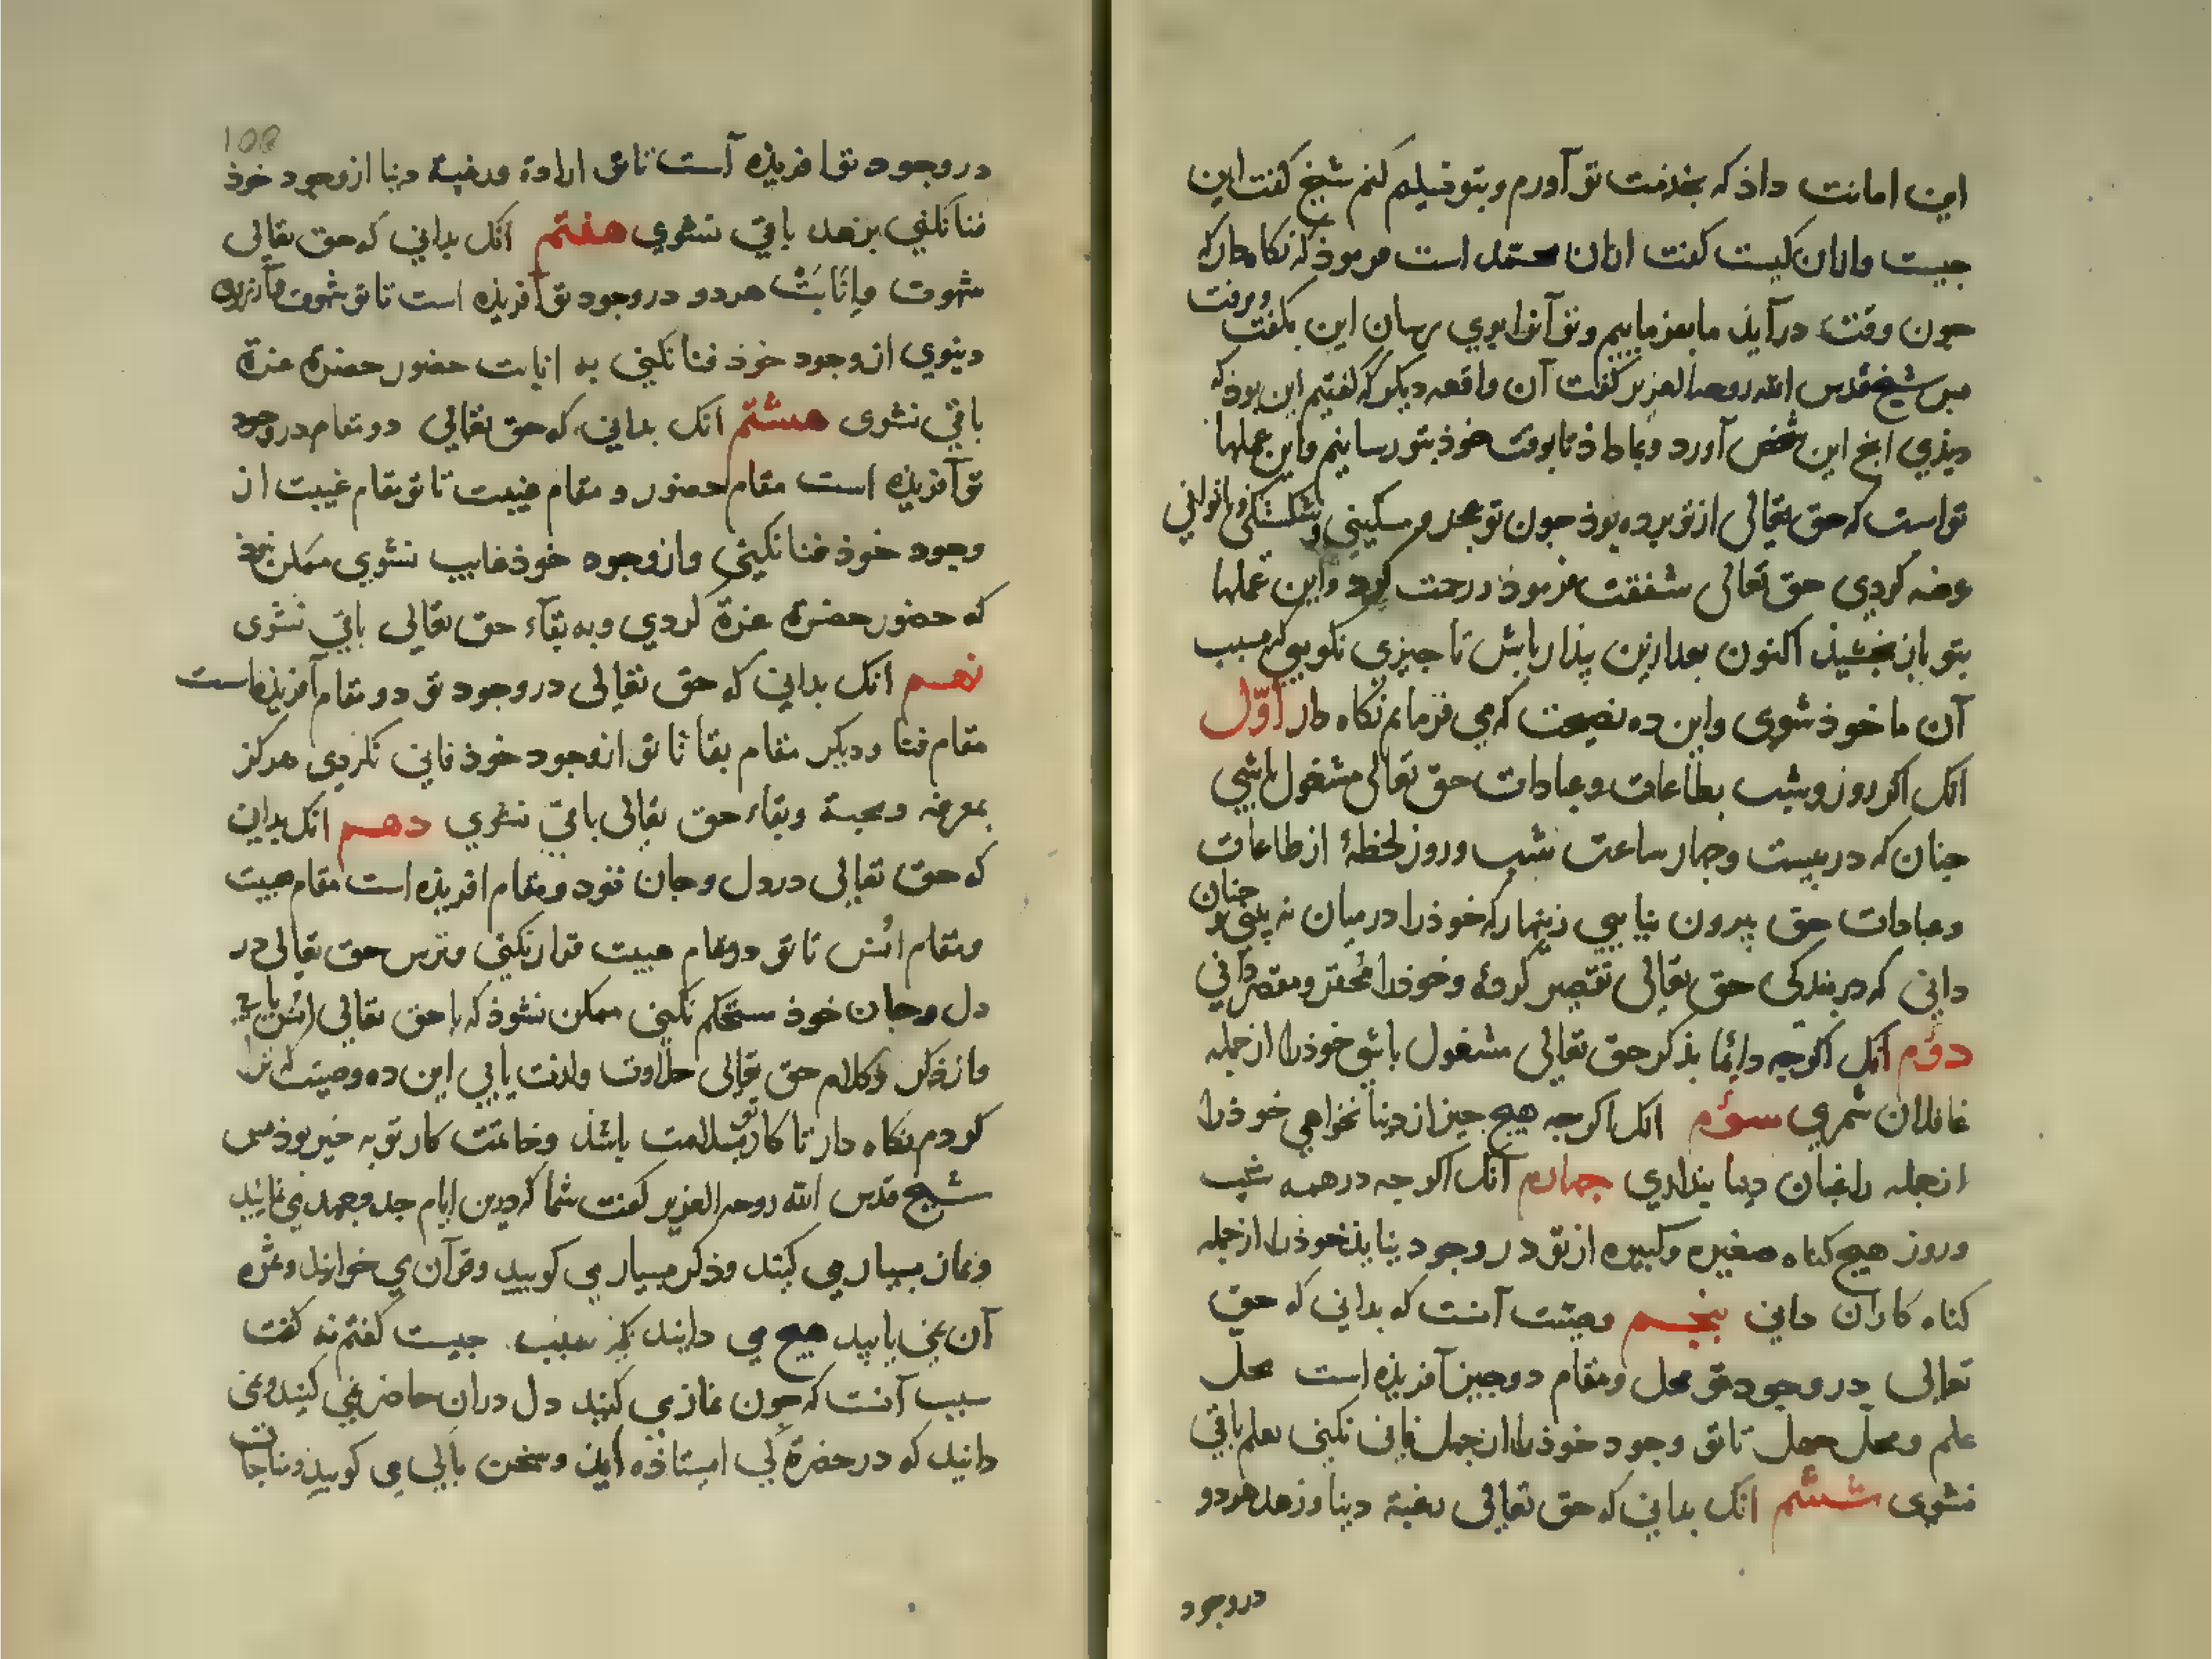 این امانت داذ که بخذمت تو آورم و بتو تسلیم کنم شیخ کفت این
جیست وازان کیست کفت ازان محمد است فرموذ که نکاه دار که
جون وقت درآیذ ما بفرماییم و تو آنرا بوی رسان این بکفت و برفت
بس شیخ قدس الله روحه العزیز کفت آن واقعه دیکر که کفتیم این بوذ که
دیذی انج این شخص آورد و بما داذ تا بوقت خوذ بتو رسانیم واین عملها
تو است که حق تعالی از تو برده بوذ جون تو بعجز و مسکینی و شکستکی و ناتوانی
عرضه کردی حق تعالی شفقت فرموذ و رحمت کرد واین عملها
بتو باز بخشیذ اکنون بعد ازین بیذار باش تا جیزی نکویی که بسبب
آن ماخوذ شوی واین ده نصیحت که می فرمایم نکاه دار اوّل
انک اکر روز و شب بطاعات و عبادات حق تعالی مشغول باشی
جنان که در بیست و جهار ساعت شب و روز لحظهٔ از طاعات
و عبادات حق بیرون نیایی زینهار که خوذرا در میان نه بینی و جنان
دانی که در بندکی حق تعالی تقصیر کردهٔ و خوذرا محقر و مقصر دانی
دوّم انک اکرجه دائما بذکر حق تعالی مشغول باشی خوذرا از جمله
غافلان شمری سوّم انک اکرجه هیج جیز از دنیا نخواهی خوذرا
از جمله راغبان دنیا بنداری جهارم آنک اکرجه در همه شب
و روز هیج کناه صغیره و کبیره از تو در وجود نیایذ خوذرا از جمله
کناه کاران دانی بنجم وصیت آنست که بدانی که حق
تعالی در وجود تو محل و مقام دو جیز آفریذه است محل
علم و محل جهل تا تو وجود خوذرا از جهل فانی نکنی بعلم باقی
نشوی ششم انک بدانی که حق تعالی رغبة دنیا و زهد هر دو
در وجود
108
در وجود تو افریذه است تا تو ارادة و رغبة دنیا از وجود خوذ
فنا نکنی بزهد باقی نشوی هفتم انک بدانی که حق تعالی
شهوت و اِنَابَتْ هر دو در وجود تو آفریذه است تا تو شهوت و آرزوی
دنیوی از وجود خوذ فنا نکنی به انابت حضور حضرة عزة
باقی نشوی هشتم انک بدانی که حق تعالی دو مقام در وجود
تو آفریذه است مقام حضور و مقام غیبت تا تو بمقام غیبت از
وجود خوذ فنا نکنی واز وجود خوذ غایب نشوی ممکن نبوذ
که حضور حضرة عزة کردی و به بقآء حق تعالی باقی نشوی
نهم انک بدانی که حق تعالی در وجود تو دو مقام آفریذه است
مقام فنا و دیکر مقام بقا تا تو از وجود خوذ فانی نکردی هرکز
بمعرفه و محبة و بقاء حق تعالی باقی نشوی دهم انک بدانی
که حق تعالی در دل و جان تو دو مقام افریذه است مقام هیبت
و مقام اُنس تا تو در مقام هیبت قرار نکنی و ترس حق تعالی در
دل و جان خوذ مستحکم نکنی ممکن نشوذ که با حق تعالی اُنس یابی
واز ذکر و کلام حق تعالی حلاوت و لذت یابی این ده وصیت که ترا
کردم نکاه دار تا کار تو بسلامت باشذ و خاتمت کار تو به خیر بوذ بس
شیخ قدس الله روحه العزیز کفت شما که درین ایام جد و جهد می نمائید
و نماز بسیار می کنید و ذکر بسیار می کویید و قرآن می خوانید و ثمره
آن نمی یابید هیج می دانید که سبب جیست کفتم نه کفت
سبب آنست که جون نماز می کنید دل دران حاضر نمی کنید و نمی
دانید که در حضرة کی استاذه ایذ و سخن با کی می کوییذ و مناجات